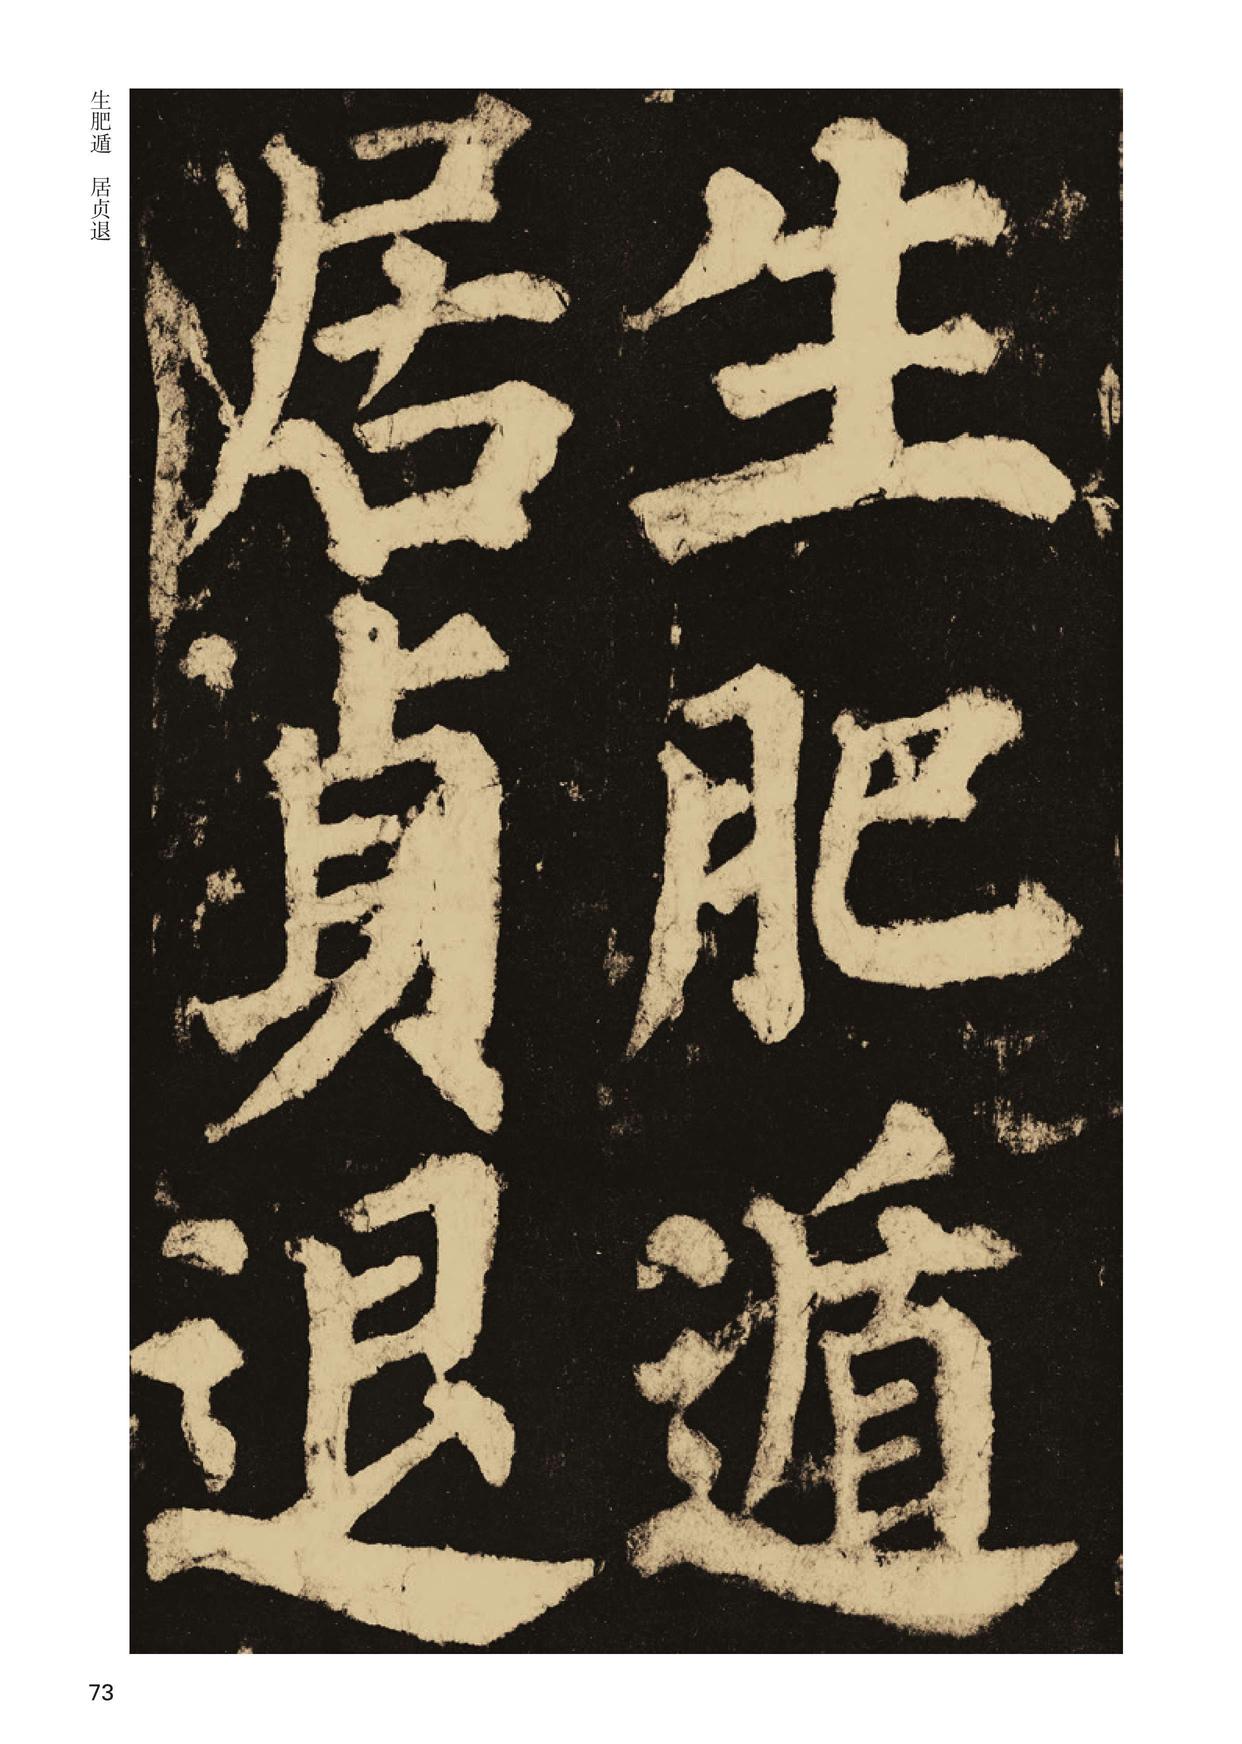 生肥遁　居贞退
生肥遁
居貞退
73